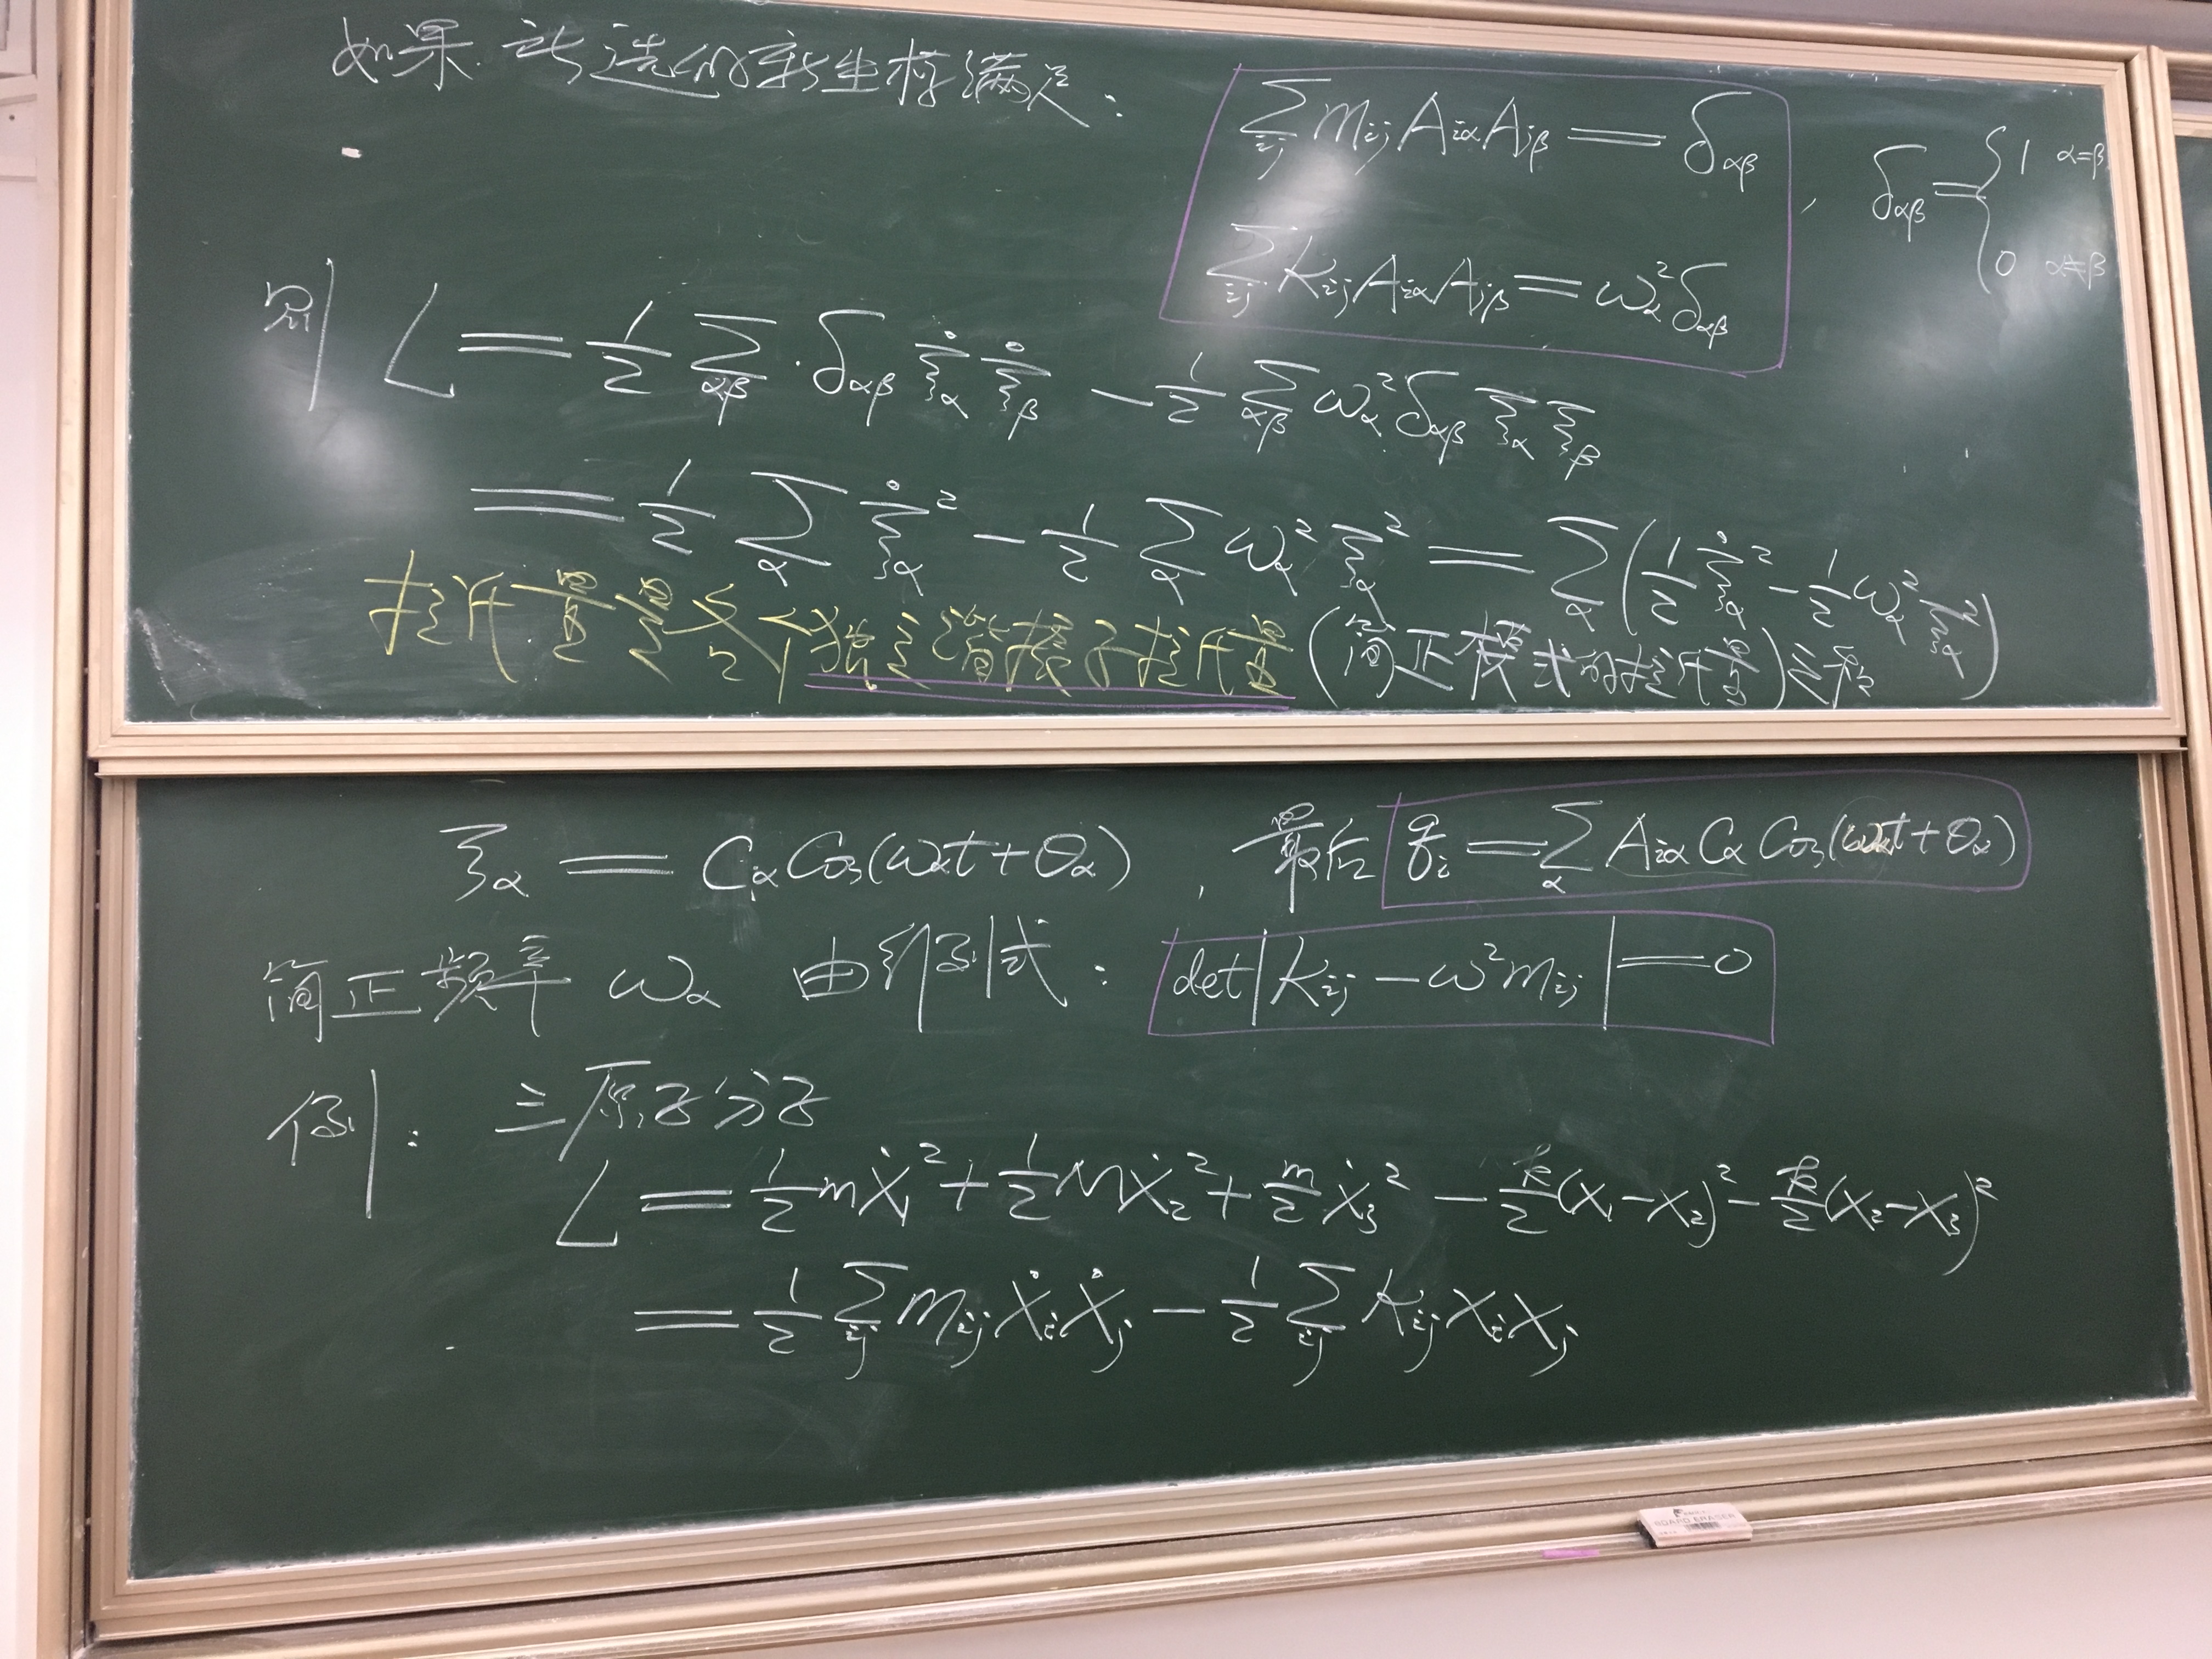 如果所选的新坐标满足:
∑_{ij} m_{ij} A_{iα} A_{jβ} = δ_{αβ} , δ_{αβ} = { 1 α=β ; 0 α≠β
∑_{ij} K_{ij} A_{iα} A_{jβ} = ω_α² δ_{αβ}
则 L = 1/2 ∑_{αβ} · δ_{αβ} ξ̇_α ξ̇_β − 1/2 ∑_{αβ} ω_α² δ_{αβ} ξ_α ξ_β
= 1/2 ∑_α ξ̇_α² − 1/2 ∑_α ω_α² ξ_α² = ∑_α ( 1/2 ξ̇_α² − 1/2 ω_α² ξ_α² )
拉氏量是多个独立谐振子拉氏量 (简正模式的拉氏量) 之和
ξ_α = C_α Cos(ω_α t + θ_α) , 最后 q_i = ∑_α A_{iα} C_α Cos(ω_α t + θ_α)
简正频率 ω_α 由行列式: det| K_{ij} − ω² m_{ij} | = 0
例: 三原子分子
L = 1/2 m ẋ_1² + 1/2 M ẋ_2² + m/2 ẋ_3² − k/2 (x_1 − x_2)² − k/2 (x_2 − x_3)²
= 1/2 ∑_{ij} m_{ij} ẋ_i ẋ_j − 1/2 ∑_{ij} K_{ij} x_i x_j
BOARD ERASER